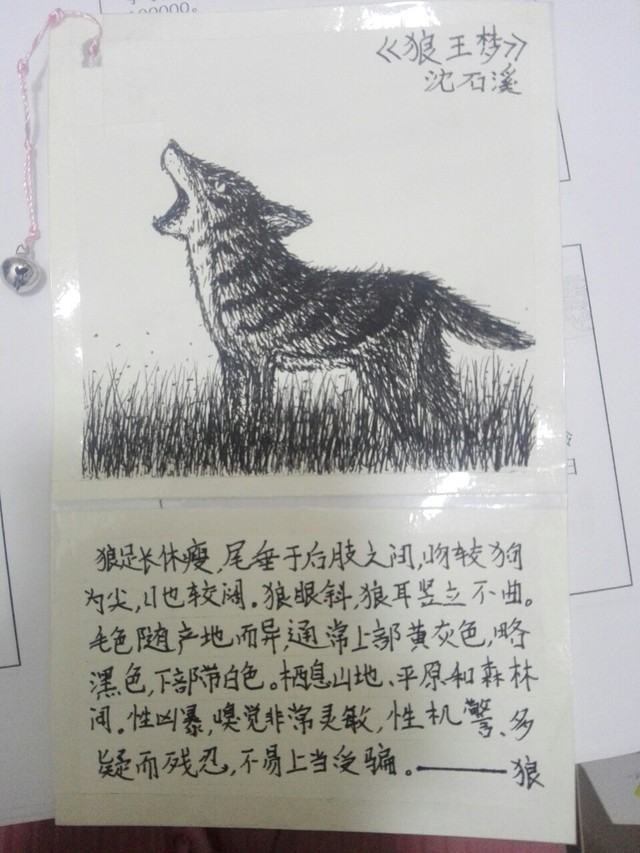 100000。
《狼王梦》
沈石溪
狼足长体瘦,尾垂于后肢之间,吻较狗
为尖,口也较阔。狼眼斜,狼耳竖立不曲。
毛色随产地而异,通常上部黄灰色,略
混黑色,下部带白色。栖息山地、平原和森林
间。性凶暴,嗅觉非常灵敏,性机警、多
疑而残忍,不易上当受骗。——狼